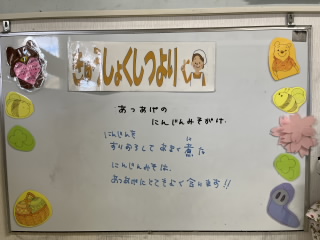 きゅうしょくしつより
あつあげの
にんじんみそがけ.
にんじんを
すりおろして あまく煮た
に
にんじんみそは、
あつあげにとてもよく合います!!